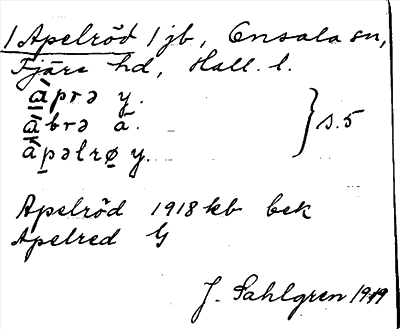 1 Apelröd 1 jb, Onsala sn,
Fjäre hd, Hall. l.
à̱prə y.
à̱brə ä.
} s. 5
àpəlrø̱ y.
Apelröd 1918 kb bek
Apelred G
J. Sahlgren 1919